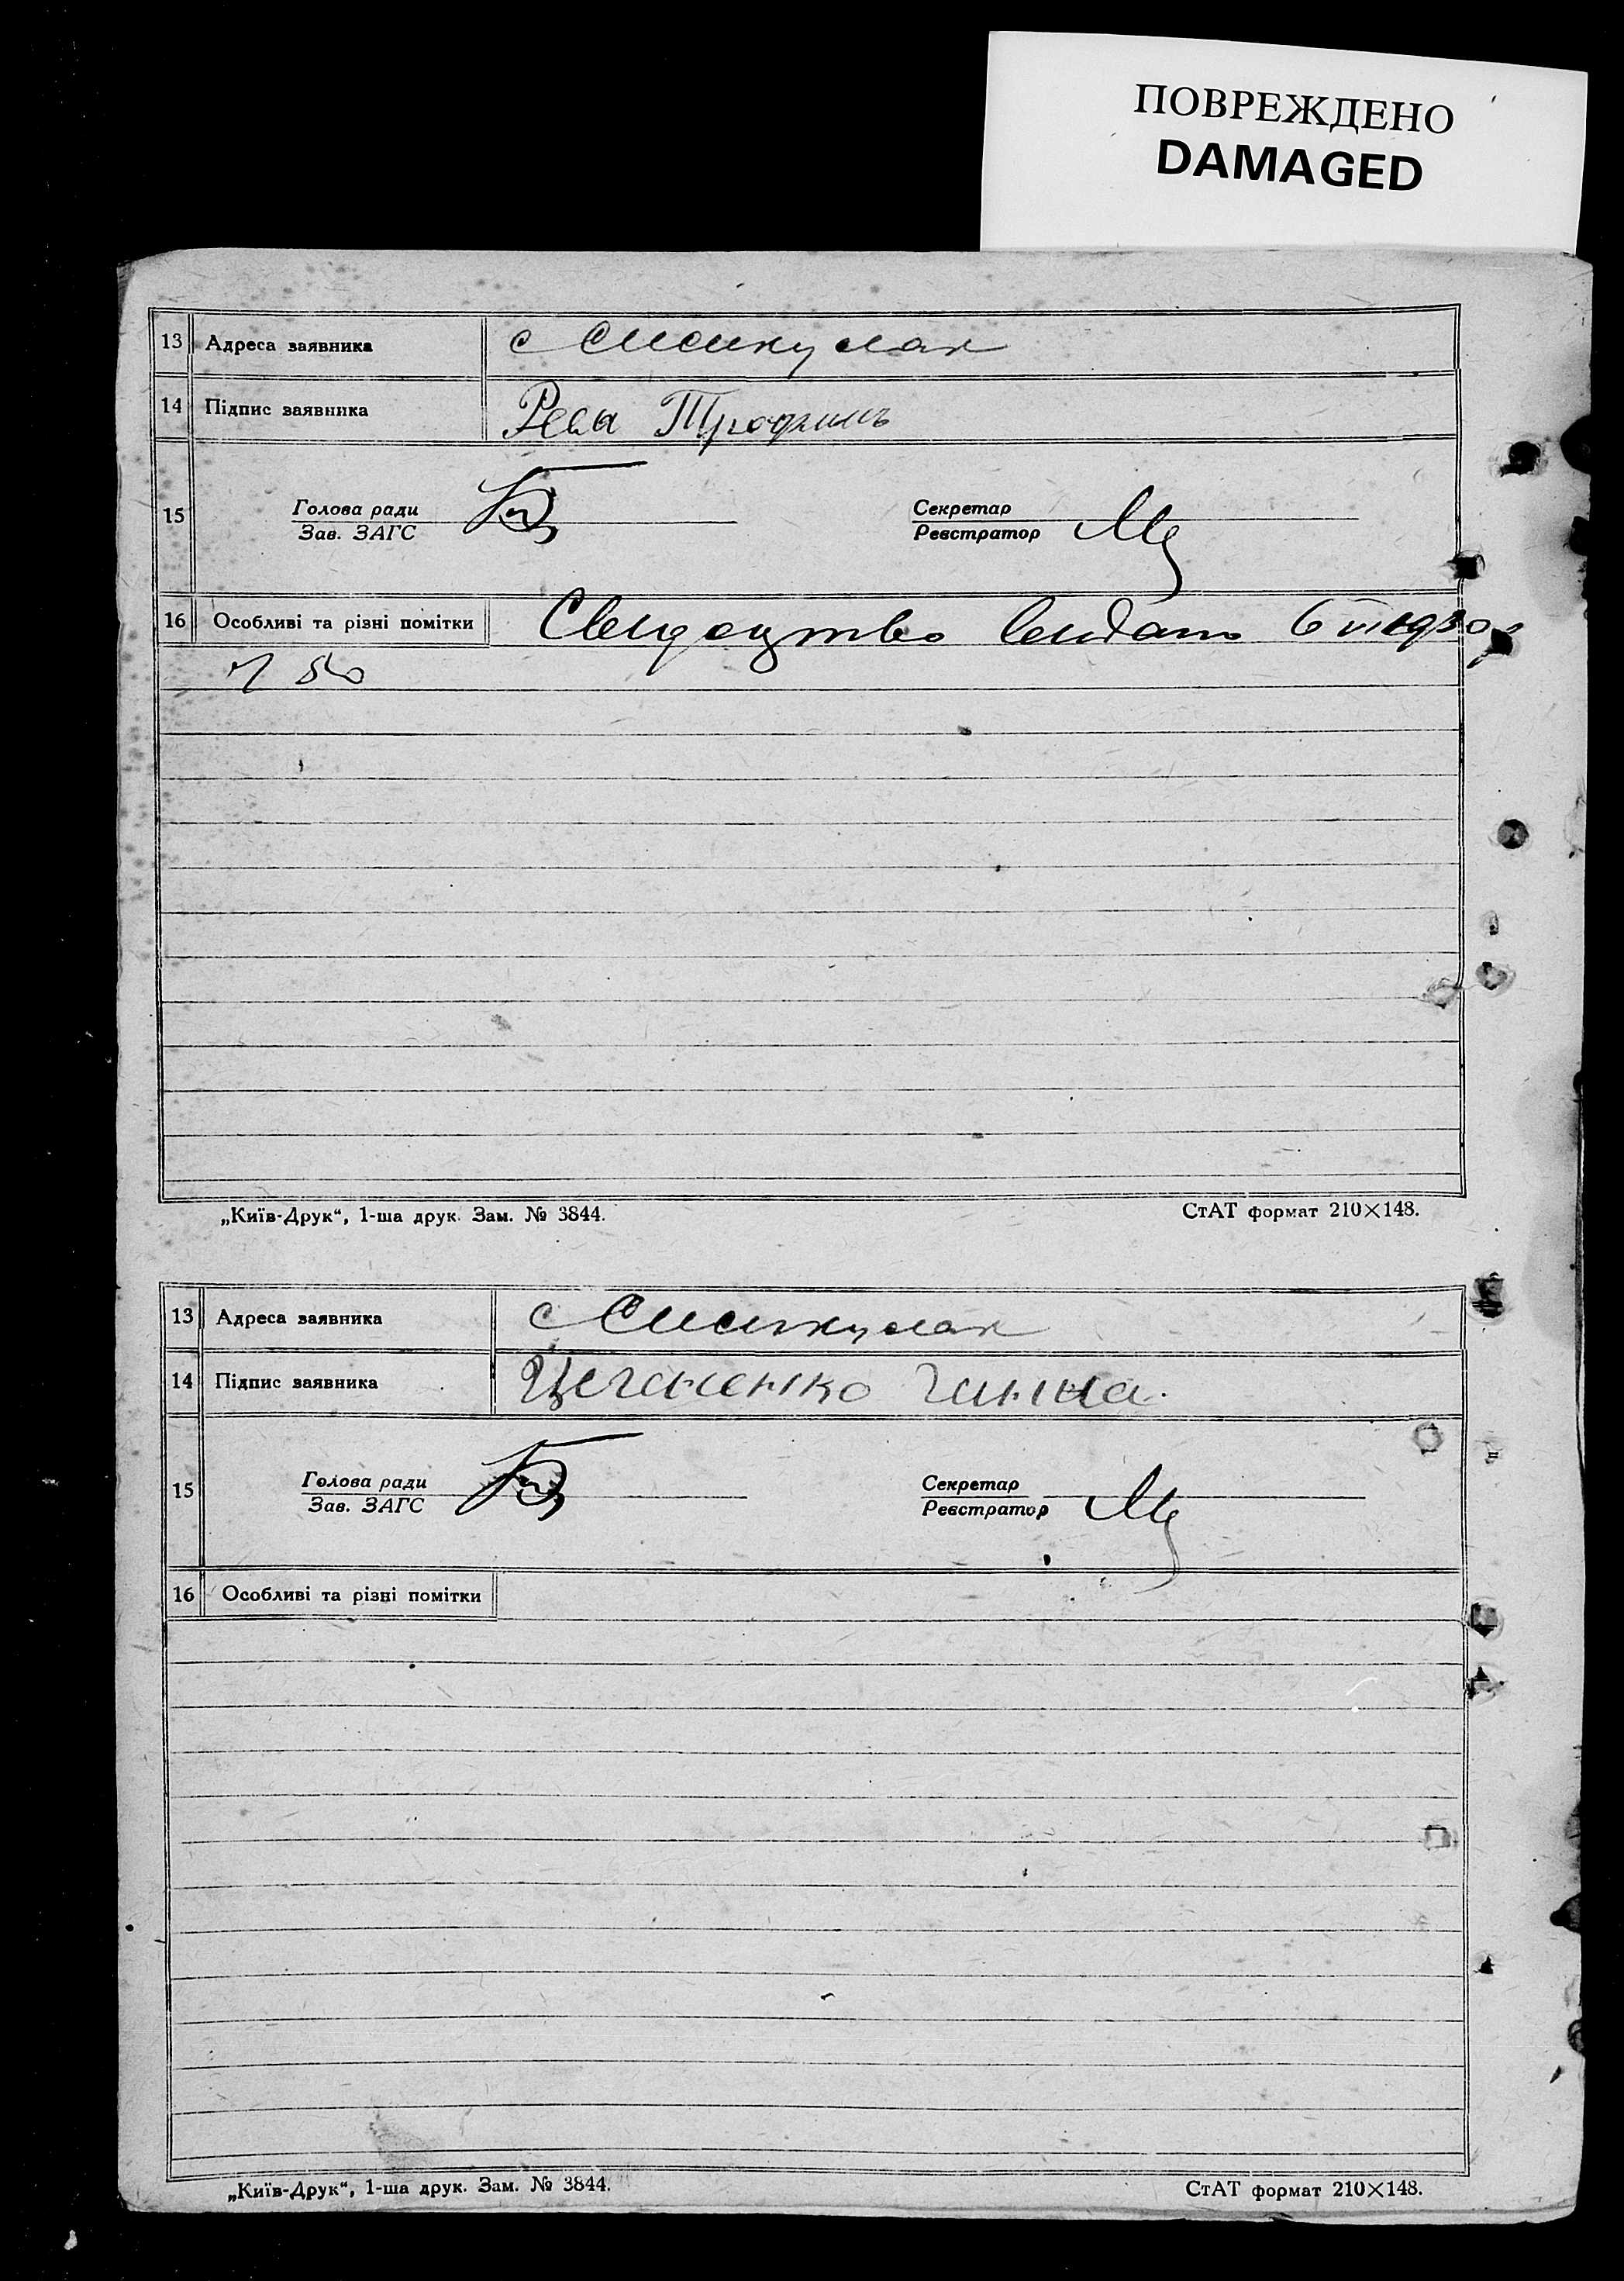 ПОВРЕЖДЕНО
DAMAGED
13 Адреса заявника с
14 Підпис заявника Рева Трофимъ
15 Голова ради Секретар
Зав. ЗАГС Реєстратор
16 Особливі та різні помітки Свидоцтво видано 6
„Київ-Друк“, 1-ша друк. Зам. № 3844. СтАТ формат 210×148.
13 Адреса заявника с
14 Підпис заявника
15 Голова ради Секретар
Зав. ЗАГС Реєстратор
16 Особливі та різні помітки
„Київ-Друк“, 1-ша друк. Зам. № 3844. СтАТ формат 210×148.